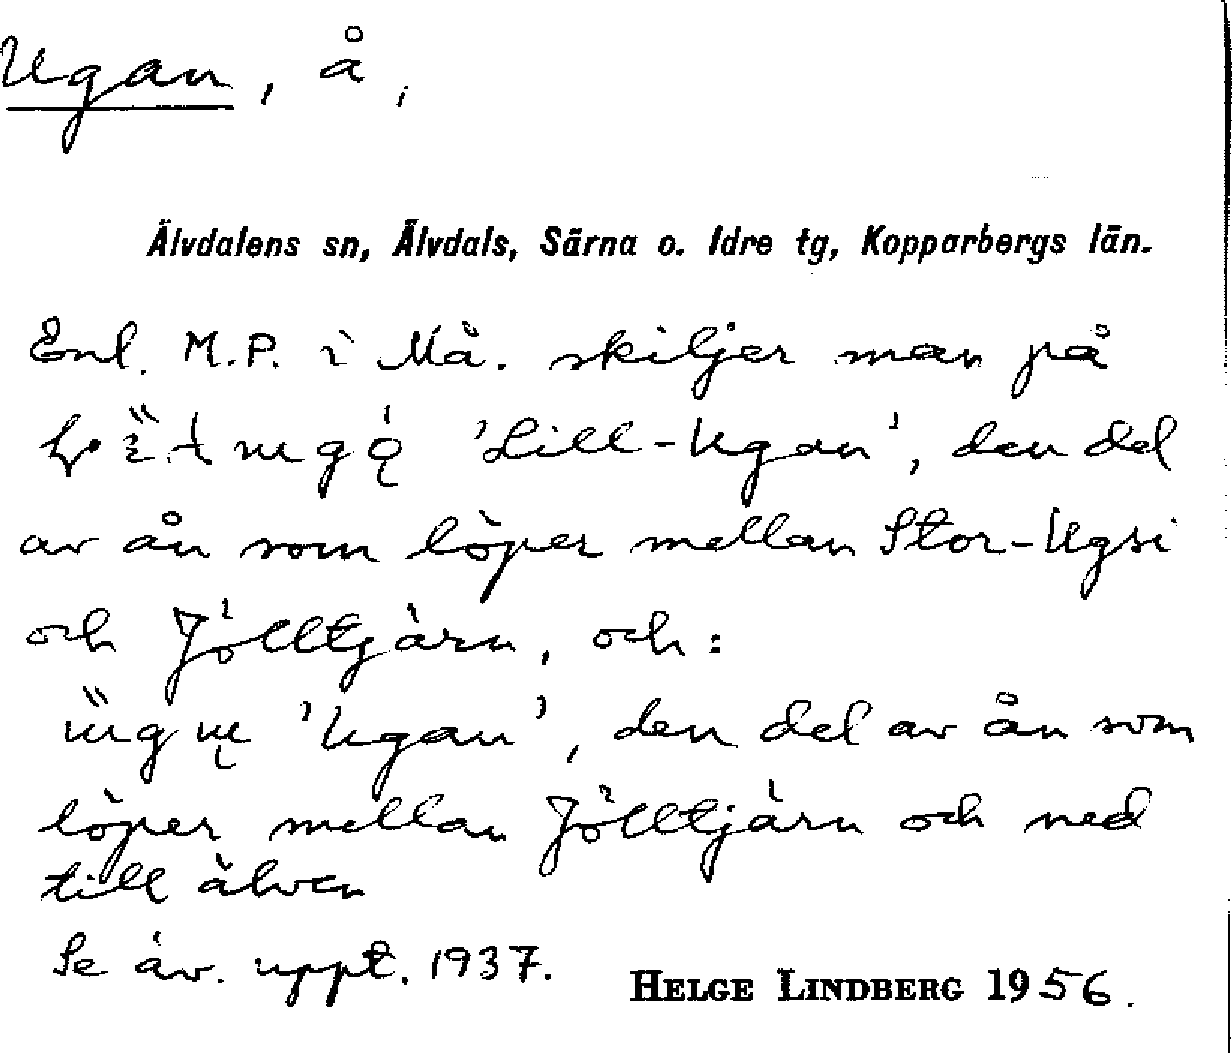 Ugan, å,
Älvdalens sn, Älvdals, Särna o. Idre tg, Kopparbergs län.
Enl. M.P. i Må. skiljer man på
'Lill-Ugan', den del
av ån som löper mellan Stor-Ugsi
och Jölltjärn, och:
'Ugan', den del av ån som
löper mellan Jölltjärn och ned
till älven
Se äv. uppt. 1937.
HELGE LINDBERG 1956.